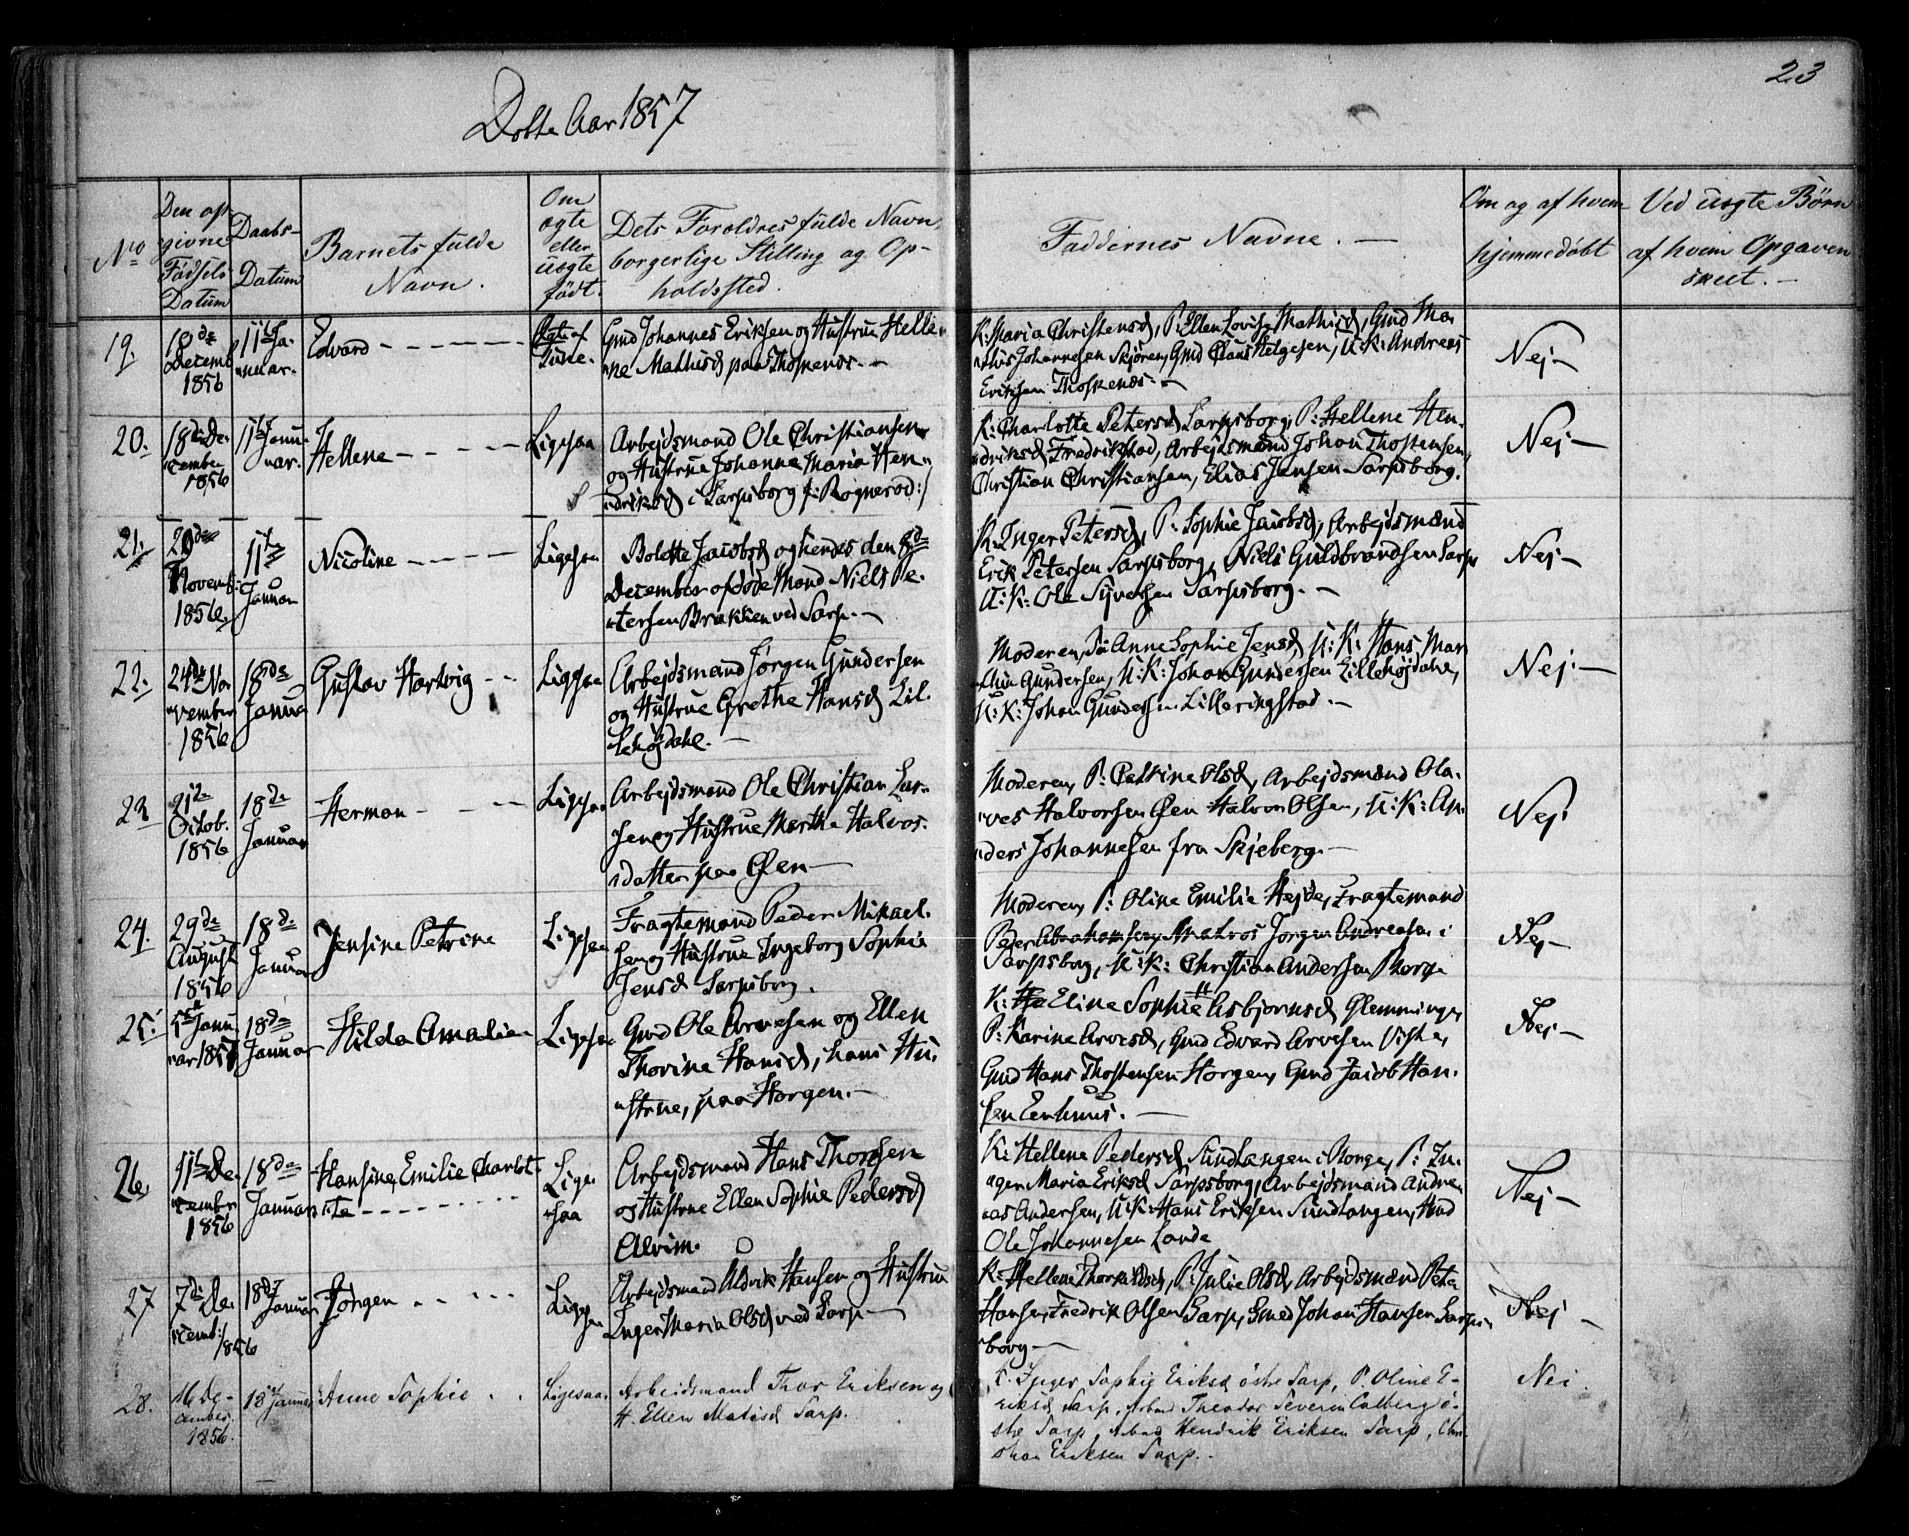 23
Dobte Aar 1857
No
Den op
givne
Fødsels
Datum
Daabs-
Datum
Barnets fulde
Navn.
Om
ægte
eller
uægte
født.
Dets Forældres fulde Navn,
borgerlige Stilling og Op-
holdssted.
Faddernes Navne. —
Om og af hvem
hjemmedøbt
Ved uægte Børn
af hvem Opgaven
skeet. —
19.
18de
Decemb
1856
11te Ja-
nuar.
Edvard
Ægte af
Tune.
Gmd Johannes Eriksen og Hustrue Helle-
ne Mathisd paa
K: Maria Christensd, P: Ellen Lovise Mathisd, Gmd Ma-
Johannesen Skjøren, Gmd Claus Helgesen, U: K: Andreas
Eriksen
Nej —
20.
18de De-
cember
1856
11te Janu-
ar.
Hellene
Ligesaa
Arbejdsmand Ole Christiansen
og Hustrue Johanne Maria Hen-
driksd i Sarpsborg /: Rognerød :/
K: Charlotte Petersd Sarpsborg, P: Hellene Hen-
driksd Fredrikstad, Arbejdsmænd Johan Thostensen,
Christian Christiansen, Elias Jensen Sarpsborg.
Nej —
21.
29de
Novemb:
1856.
11te
Januar
Nicoline
Ligesaa
Bolette Jacobsd og hendes den 8de
December afdøde Mand Niels Pe-
tersen Brækken ved Sarp. —
K: Inger Petersd, P: Sophie Jacobsd, Arbejdsmænd
Erik Petersen Sarpsborg, Niels Guldbrandsen Sarp
U: K: Ole Syversen Sarpsborg. —
Nej —
22.
24de No
vember
1856
18de
Janua
Gustav Hartvig
Ligesaa
Arbejdsmand Jørgen Gundersen
og Hustrue Grethe Hansd Lil-
lehøjdahl. —
Moderen, P: Anne Sophie Jensd, U: K: Hans Mar-
thin Gundersen, U: K: Johan Gundersen Lillehøjdahl,
U: K: Johan Gundersen Lilleringstad. —
Nej. —
23
21de
Octob.
1856
18de
Januar
Herman
Ligesaa
Arbejdsmand Ole Christian Lar-
sen og Hustrue Marthe Halvors-
datter paa Øen —
Moderen, P: Petrine Olsd, Arbejdsmænd Ola-
ves Halvorsen Øen Halvor Olsen, U: K: An-
ders Johannesen fra Skjeberg. —
Nej
24.
29de
August
1856
18de
Januar
Jensine Petrine
Ligesaa
Fragtemand Peder Mikael-
sen og Hustrue Ingeborg Sophie
Jensd Sarpsborg.
Moderen, P: Oline Emilie Hejde, Fragtemand
Peder Abrahamsen, Matros Jørgen Andreasen i
Sarpsborg, U: K: Christian Andersen Borge
Nej —
25.
5te Janu
ar 1857
18de
Januar
Hilda Amalie
Ligesaa
Gmd Ole Arvesen og Ellen
Thorine Hansd, hans Hu-
strue, paa Horgen. —
K: Eline Sophie Asbjørnsd Glemminge,
P: Karine Arvesd, Gmd Edvard Arvesen Viste,
Gmd Hans Thostensen Horgen, Gmd Jacob Han-
sen Eenhuus. —
Nej —
26.
11te De-
cember
1856
18de
Januar
Hansine Emilie Charlot-
te
Lige-
saa
Arbejdsmand Hans Thoresen
og Hustrue Ellen Sophie Pedersd
Alvim.
K: Hellene Pedersd Sundlangen i Borge, P: In-
ger Maria Eriksd Sarpsborg, Arbejdsmand Andre-
as Andersen, U: K: Hans Eriksen Sundlangen, Gmd
Ole Johannesen Lande
Nej —
27
7de De-
cemb: 1856
18de
Januar
Jørgen
Ligesaa
Arbejdsmand Uldrik Hansen og Hustrue
Inger Maria Olsd ved Sarp —
K: Hellene Thorkildsd, P: Julie Olsd, Arbejdsmænd Peter
Hansen, Fredrik Olsen Sarp, Smed Johan Hansen Sarps-
borg —
Nej —
28.
16 De-
cember.
1856.
18 Januar
Anne Sophie
Ligesaa
Arbeidsmand Thor Eriksen og
H. Ellen Matisd Sarp.
K. Inger Sophie Eriksd østre Sarp, P. Oline E-
riksd Sarp, Arbmd Theodor Severin Catberg ø-
stre Sarp, Arbmd Hendrik Eriksen Sarp, Chri-
stian Eriksen Sarp.
Nei.